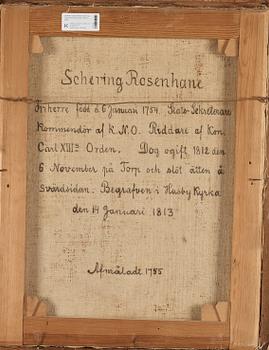 Schering Rosenhane
Friherre född d. 6 Januari 1754. Stats-Sekreterare
Kommendör af K.N.O. Riddare af Kon.
Carl XIIIs Orden. Dog ogift 1812 den
6 November på Torp och slöt ätten å
Svärdsidan. Begrafven i Husby Kyrka
den 14 Januari 1813
Afmålade 1755